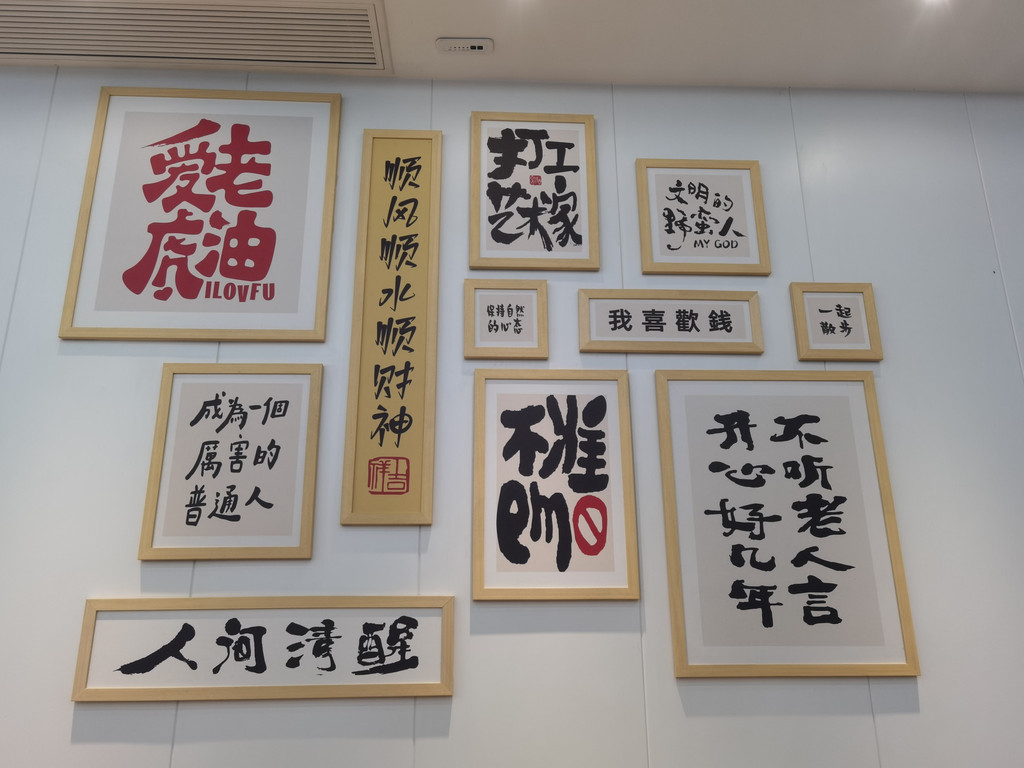 爱老
虎油
ILOVFU
顺风顺水顺财神
吉祥
打工
艺术家
文明的
野蛮人
MY GOD
保持自然
的心态
我喜歡錢
一起
散步
成為一個
厲害的
普通人
不准
emo
不听老人言
开心好几年
人间清醒